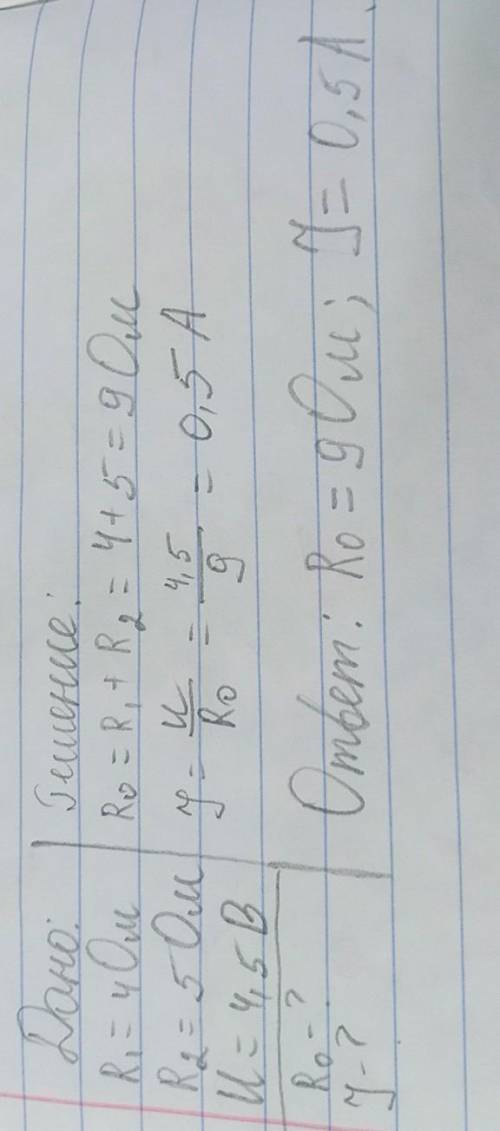 Дано:
R₁ = 4 Ом
R₂ = 5 Ом
U = 4,5 В
R₀ - ?
J - ?
Решение:
R₀ = R₁ + R₂ = 4 + 5 = 9 Ом
J = U/R₀ = 4,5/9 = 0,5 А
Ответ: R₀ = 9 Ом; J = 0,5 А.